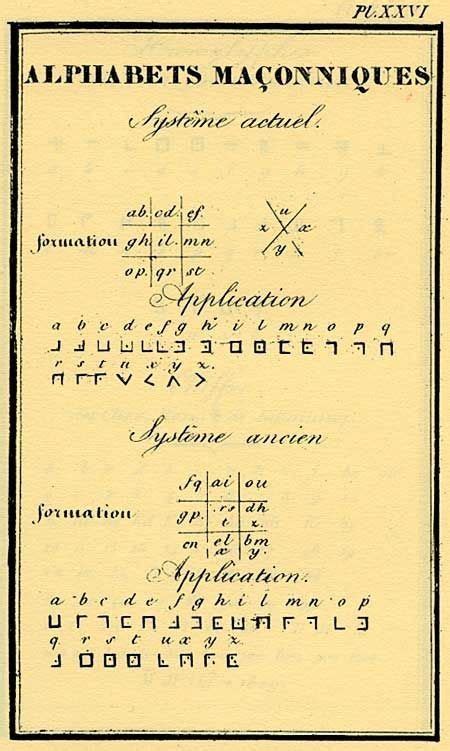 Pl. XXVI
ALPHABETS MAÇONNIQUES
Système actuel.
ab. cd. ef.
formation gh. il. mn
op. qr st
u
z x
y
Application
a b c d e f g h i l m n o p q
r s t u x y z.
Système ancien
fq ai ou
formation gp. rs dh
t z.
cn el bm
x y.
Application.
a b c d e f g h i l m n o p
q r s t u x y z.